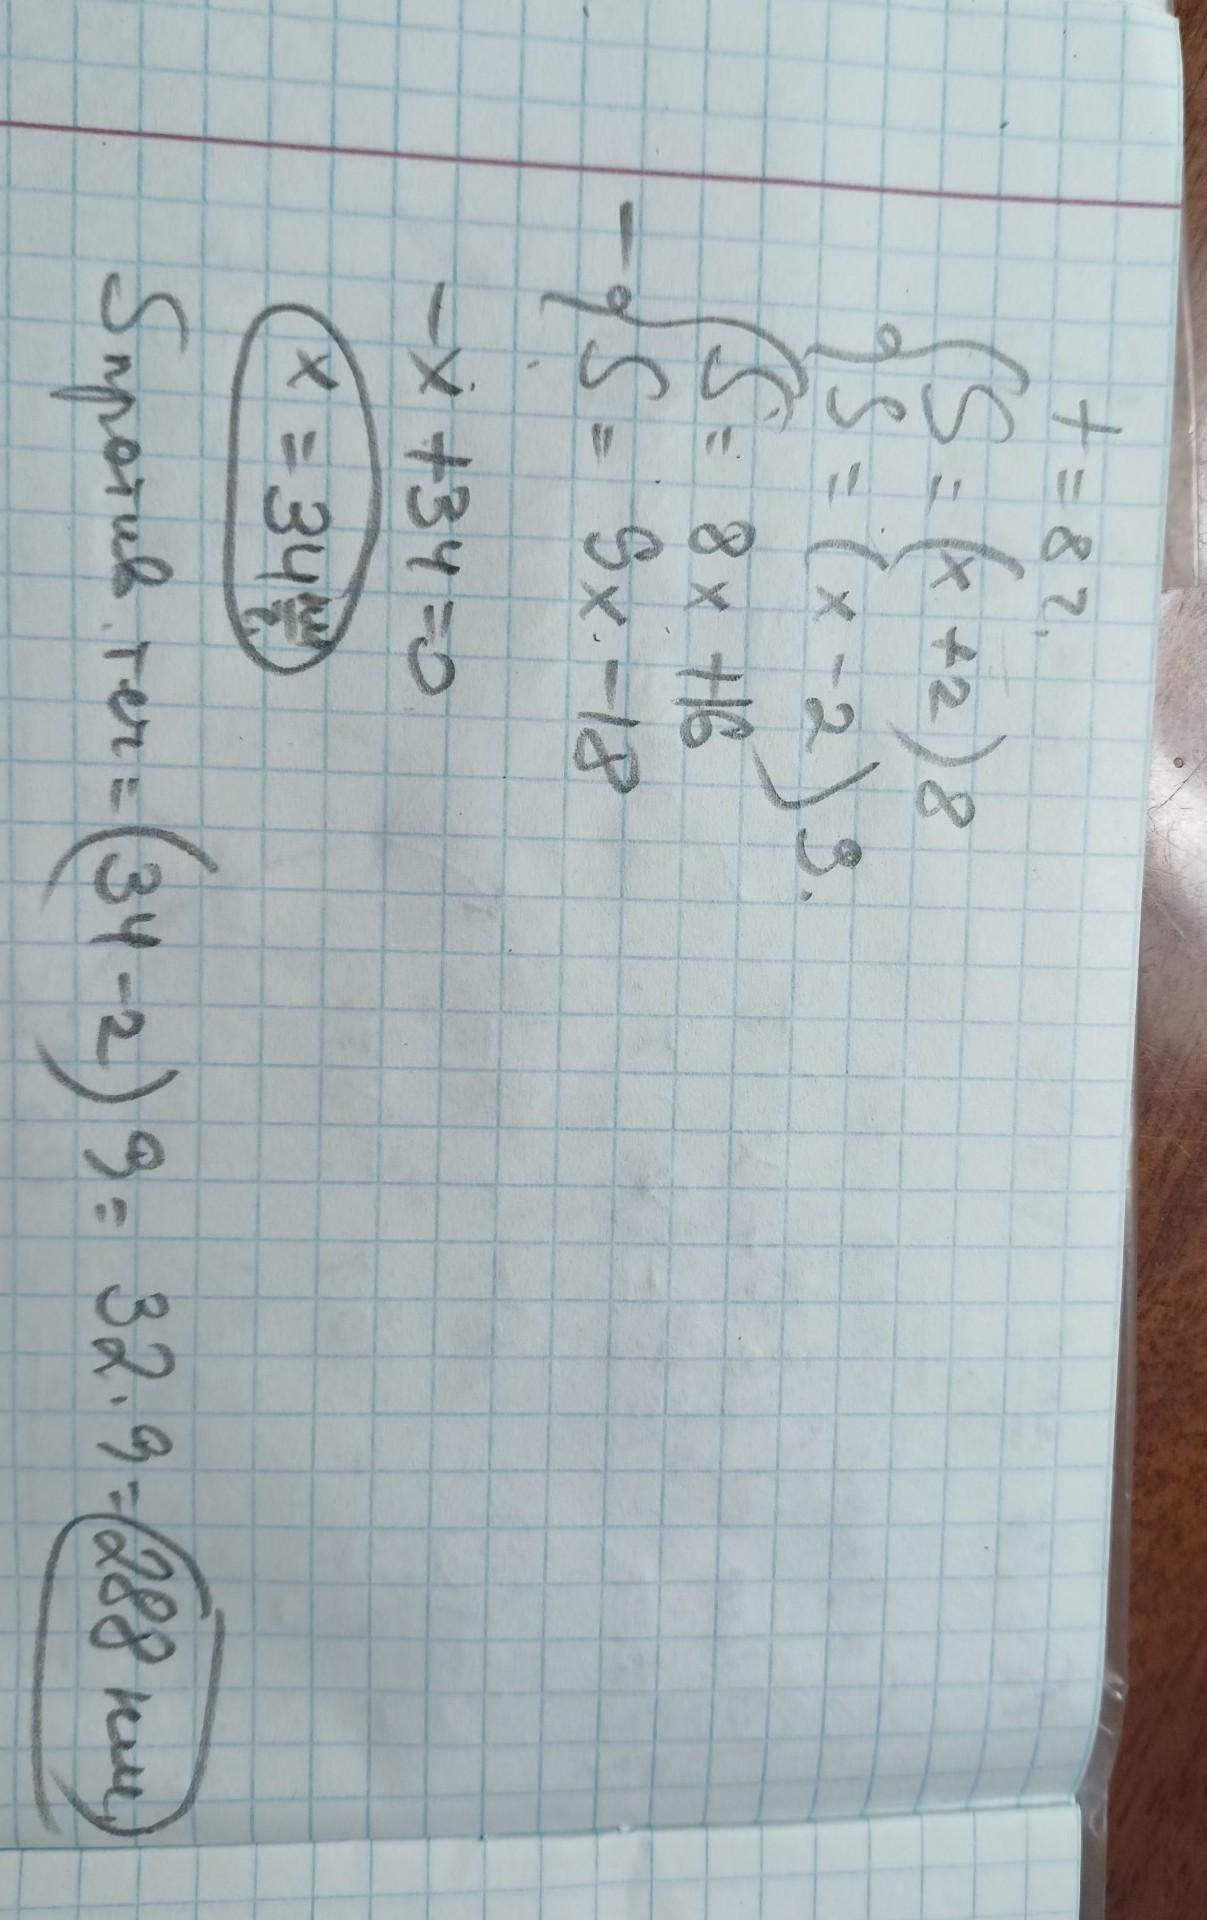 t = 8 ч.
{S = (x + 2) 8
S = (x - 2) 9.
- {S = 8x + 16
S = 9x - 18
-x + 34 = 0
x = 34 км/ч
S против. теч = (34 - 2) 9 = 32 · 9 = 288 км